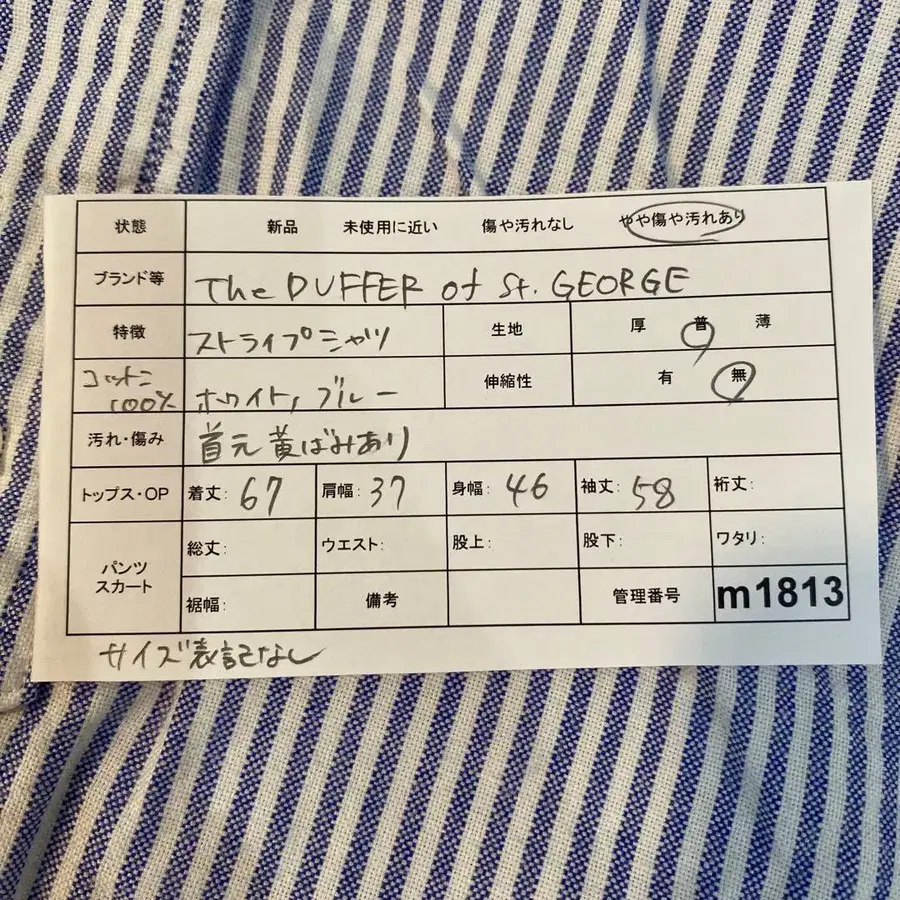 状態 新品 未使用に近い 傷や汚れなし やや傷や汚れあり
ブランド等 The DUFFER of St. GEORGE
特徴 ストライプシャツ 生地 厚 普 薄
コットン100% ホワイト, ブルー 伸縮性 有 無
汚れ・傷み 首元黄ばみあり
トップス・OP 着丈: 67 肩幅: 37 身幅: 46 袖丈: 58 裄丈:
パンツ スカート 総丈: ウエスト: 股上: 股下: ワタリ:
裾幅: 備考 管理番号 m1813
サイズ表記なし